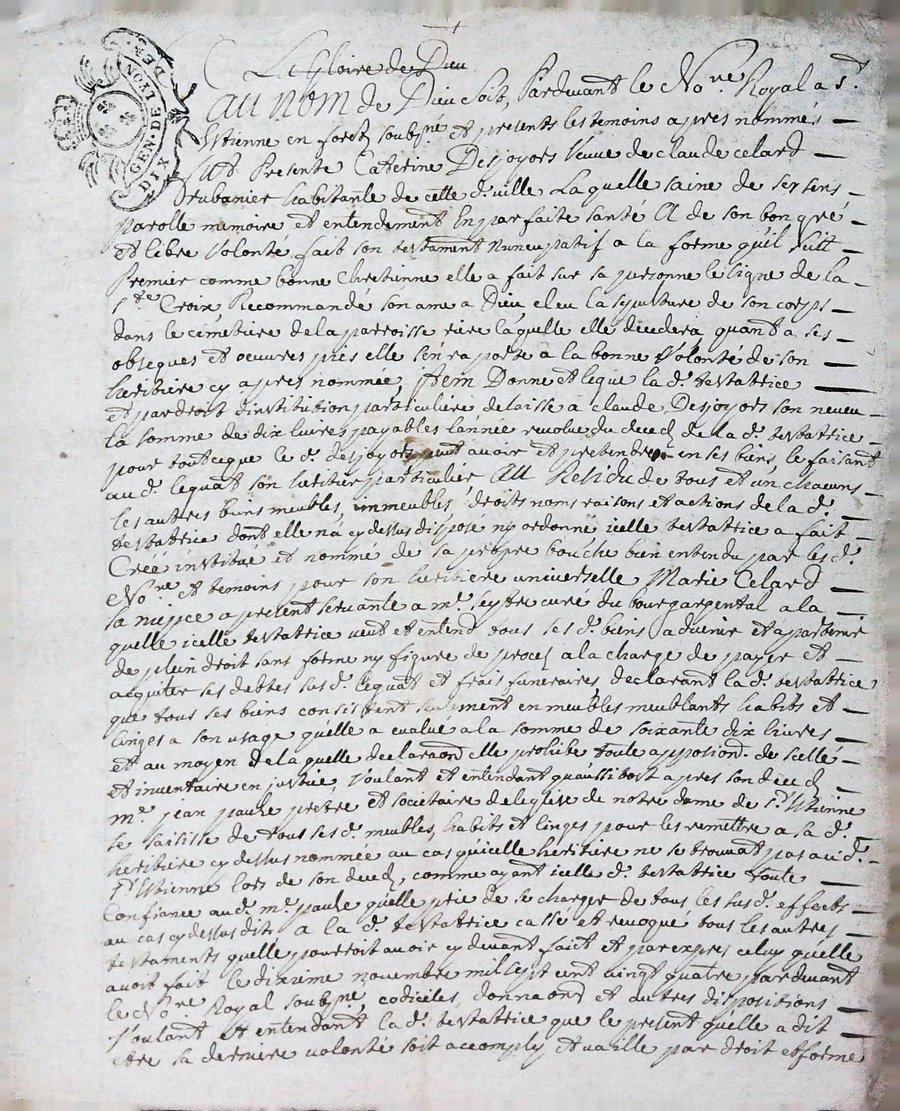 GEN. DE LYON
DIX DER.
La Gloire de Dieu
au nom de Dieu Soit, Pardevant le No.re Royal a S.t
Estienne en forest soubg.né et presents les temoins apres nommés
fut Presente Caterine Desjoyors Veuve de claude celard
Drubanier habitante de cette d. ville Laquelle saine de ses sens
Parolle memoire et entendement En parfaite santé Et de son bon gré
et libre Volonté fait son testament Nuncupatif a la forme quil Suitt
Premier comme bonne Chretienne elle a fait sur sa personne le signe de la
s.te Croix, Recommande son ame a Dieu eleu la sepulture de son corps
dans le cimetiere de la parroisse riere laquelle elle decedera quant a ses
obseques et oeuvres pies elle s'en raporte a la bonne Volonté de son
heritiere cy apres nommée, Item Donne et legue la d. testatrice
et par droit d'institution particuliere delaisse a claude Desjoyors son neveu
la somme de dix livres payables l'année revolue du deced de la d. testatrice
pour tout ce que le d. desjoyors peut avoir et pretendre en ses biens, le faisant
au d. leguat son heritier particulier Au Residu de tous et un chacuns
les autres biens meubles, immeubles, droits noms raisons et actions de la d.
testatrice dont elle n'a cy dessus disposé ny ordonné icelle testatrice a fait
Créé institué et nommé de sa propre bouche bien entendu par les d.
No.re et temoins pour son heritiere universelle Marie Celard
sa niepce a present servante a m.e seytre curé du bourgargental a la
quelle icelle testatrice veut et entend tous ses d. biens advenir et apartenir
de plein droit sans forme ny figure de proces a la charge de payer et
acquiter ses debtes susd. leguat et frais funeraires declarant la d. testatrice
que tous ses biens consistent seulement en meubles meublants habits et
linges a son usage qu'elle a evalué a la somme de soixante dix livres
et au moyen de laquelle declaraon elle prohibe toute apposion de scellé
et inventaire en justice, Voulant et entendant qu'aussitost apres son deced
m.e jean paule pretre et societaire de leglise de notre dame de s.t Etienne
se saisisse de tous ses d. meubles, habits et linges pour les remettre a sa d.
heritiere cy dessus nommée au cas qu'icelle héritiere ne se trouvat pas aud.
s.t Etienne lors de son deced, comme ayant icelle d. testatrice toute
Confiance aud. m.e paule qu'elle prie de se charger de tous les susd. effects
au cas cy dessus dit a la d. testatrice cassé et revoqué tous les autres
testaments quelle pourroit avoir cy devant faict et par expres celuy qu'elle
avoit fait le dixieme novembre mil sept cent vingt quatre pardevant
le No.re Royal soubg.né, codiciles, donnaons et autres dispositions
Voulant et entendant la d. testatrice que le present qu'elle a dit
etre sa derniere volonté soit accomply et vaille par droit et forme